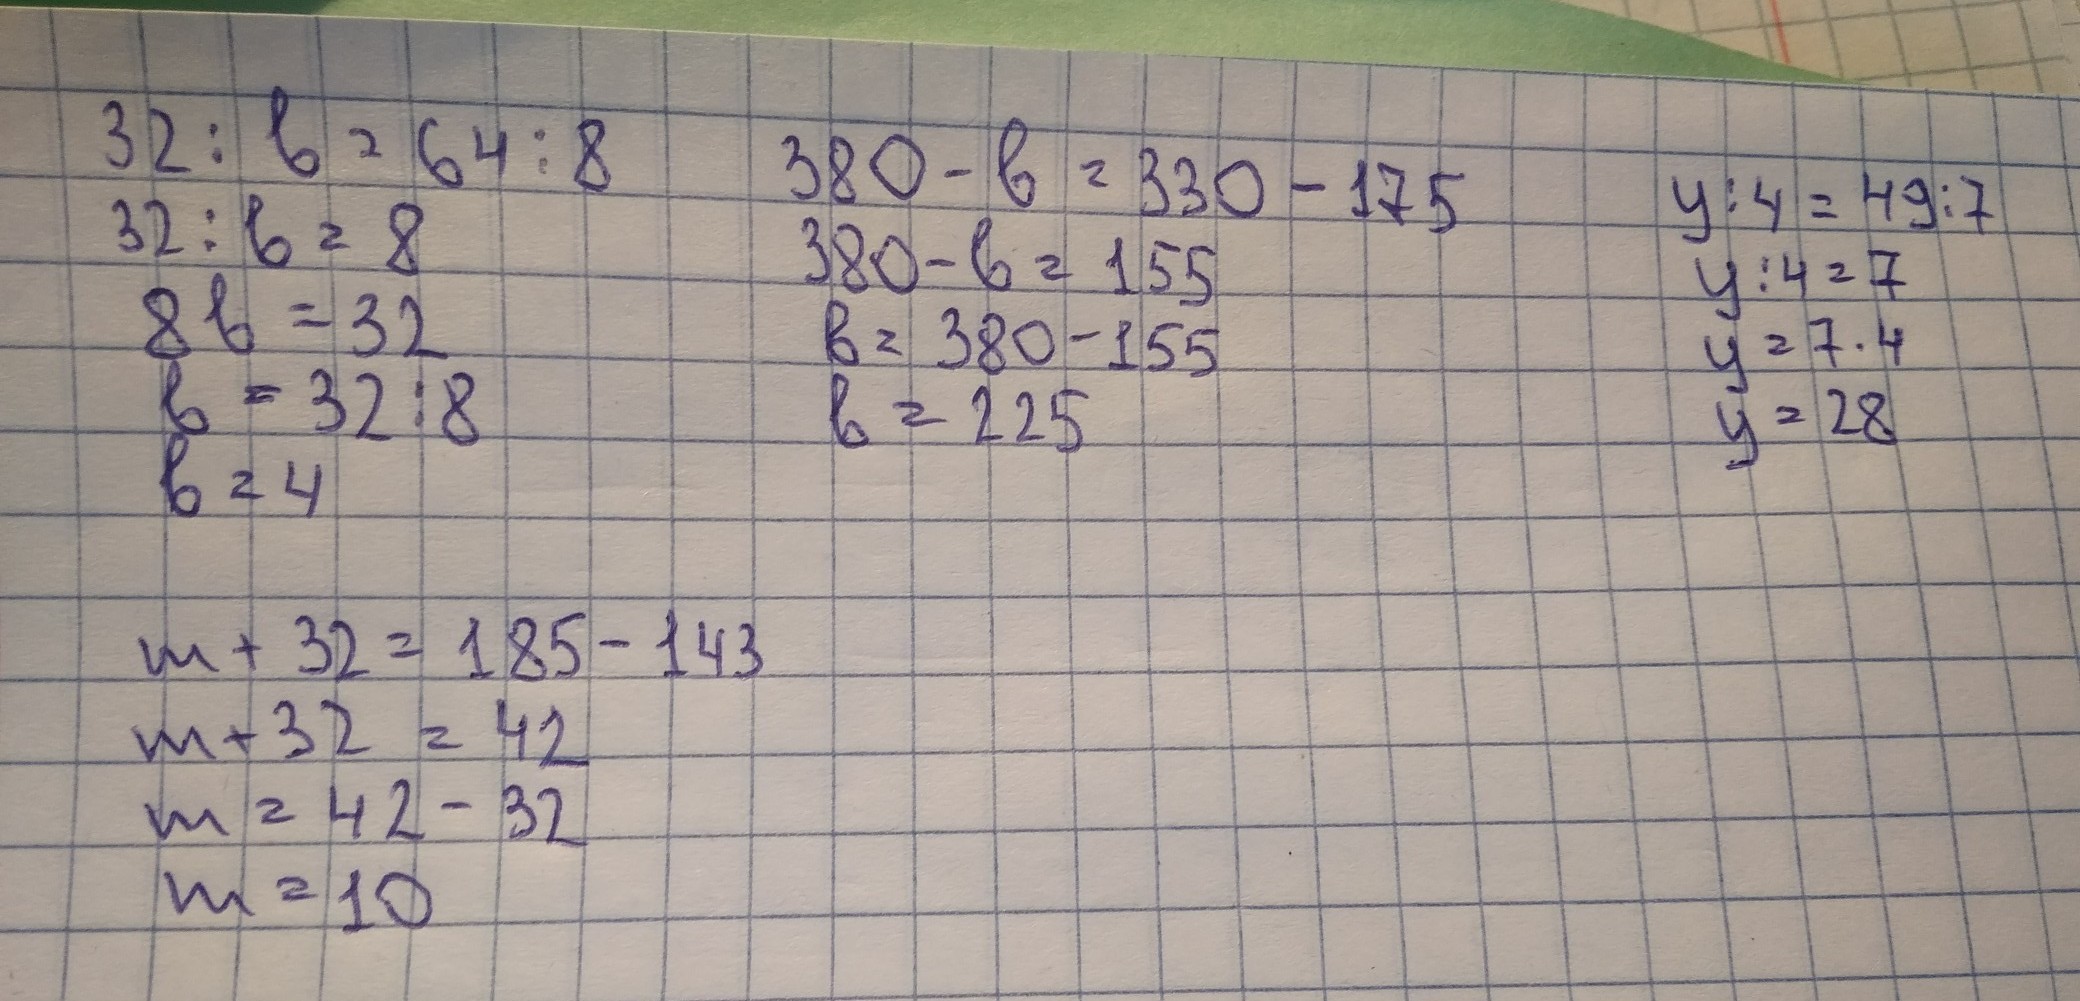 32 : b = 64 : 8
32 : b = 8
8b = 32
b = 32 : 8
b = 4
380 - b = 330 - 175
380 - b = 155
b = 380 - 155
b = 225
y : 4 = 49 : 7
y : 4 = 7
y = 7 · 4
y = 28
m + 32 = 185 - 143
m + 32 = 42
m = 42 - 32
m = 10